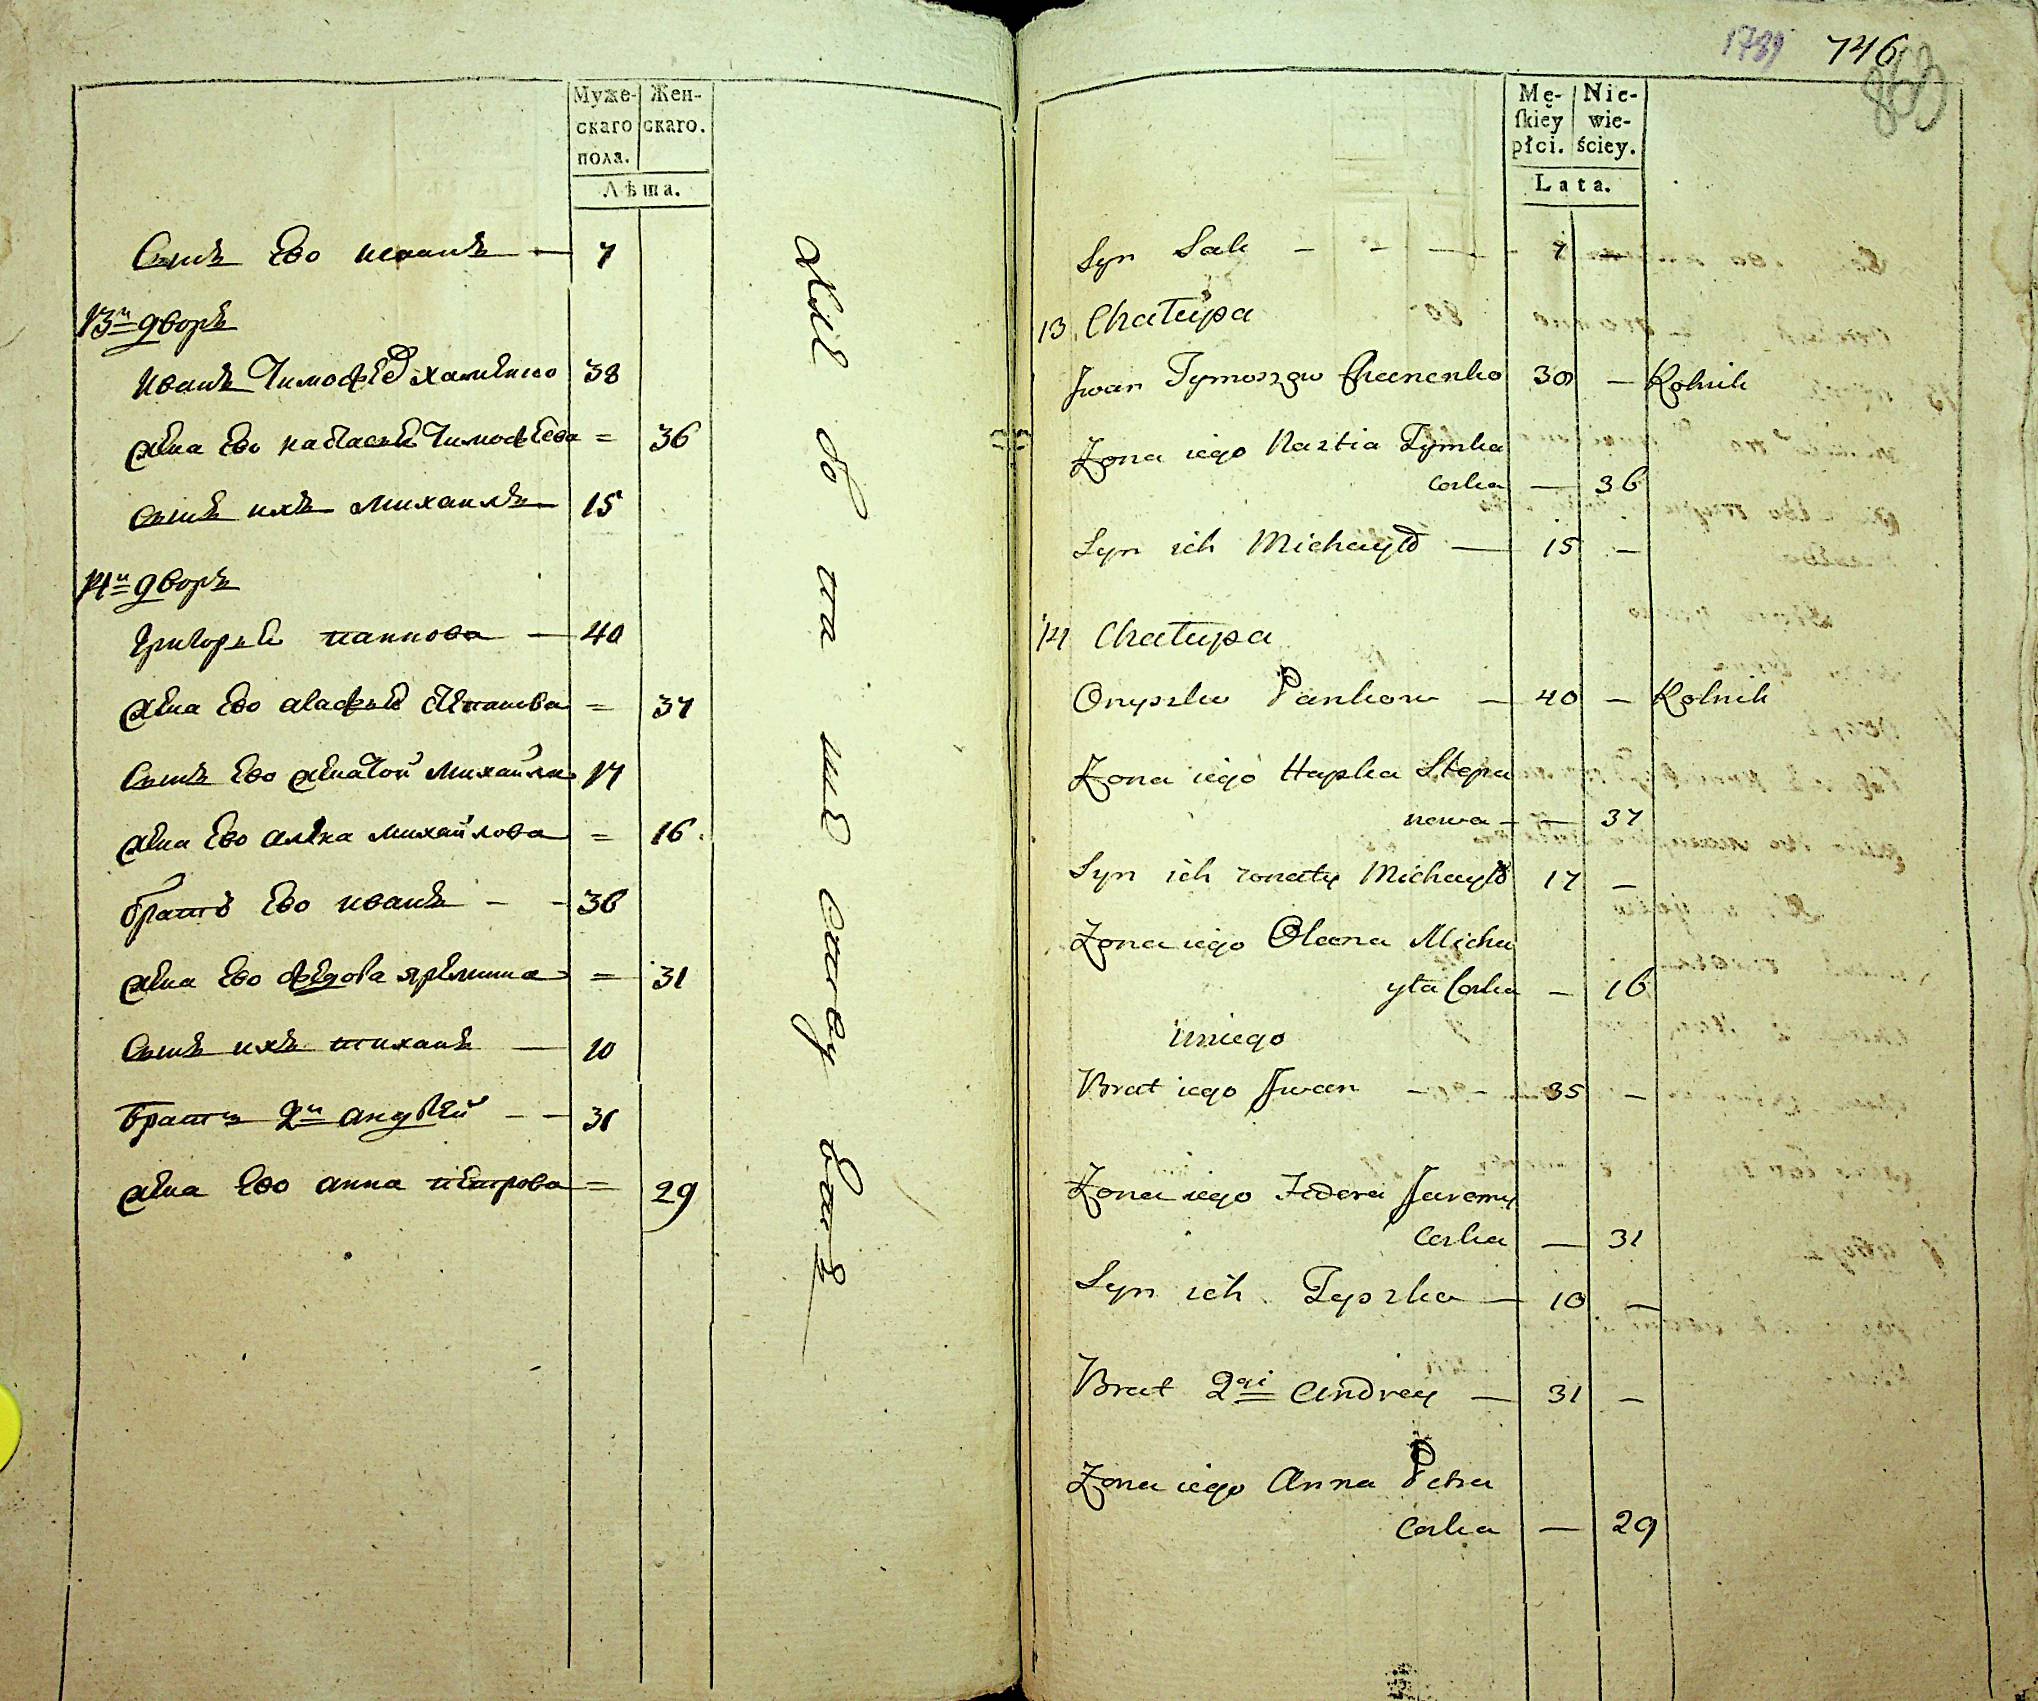 Муже- Жен-
скаго скаго.
пола.
Лѣта.
Сынъ Ево исаакъ — 7
13й дворъ
Иванъ Тимофѣевъ ханѣнко 38
жена Ево настасья Тимофѣева = 36
сынъ ихъ михаилъ 15
14й дворъ
Григорей панкова — 40
жена Ево агафья Степанова = 37
Сынъ Ево женатой михайла 17
жена Ево алѣна михайлова = 16
братъ Ево иванъ - - 36
жена Ево федора яремина = 31
Сынъ ихъ тиханъ — 10
братъ 2й андрѣй - - 31
жена Ево анна петрова = 29
1789 746
869
Mę- Nie-
ſkiey wie-
płci. ściey.
Lata.
Syn Sak - - — - 7 —
13. Chałupa
Jwan Tymoszow Chanenko 38 — Rolnik
Zona iego Nastia Tymka
corka — 36
Syn ich Michayło — 15 —
14 Chałupa
Onyszko Pankow — 40 — Rolnik
Zona iego Hapka Stepa
nowa - — 37
Syn ich zonaty Michayło 17 —
Zona iego Olena Micha
yła Corka — 16
uniego
Brat iego Jwan - - 35 —
Zona iego Fedora Jaremy
Corka — 31
Syn ich Tyszko — 10 —
Brat 2gi Andrey — 31 —
Zona iego Anna Petra
Corka — 29